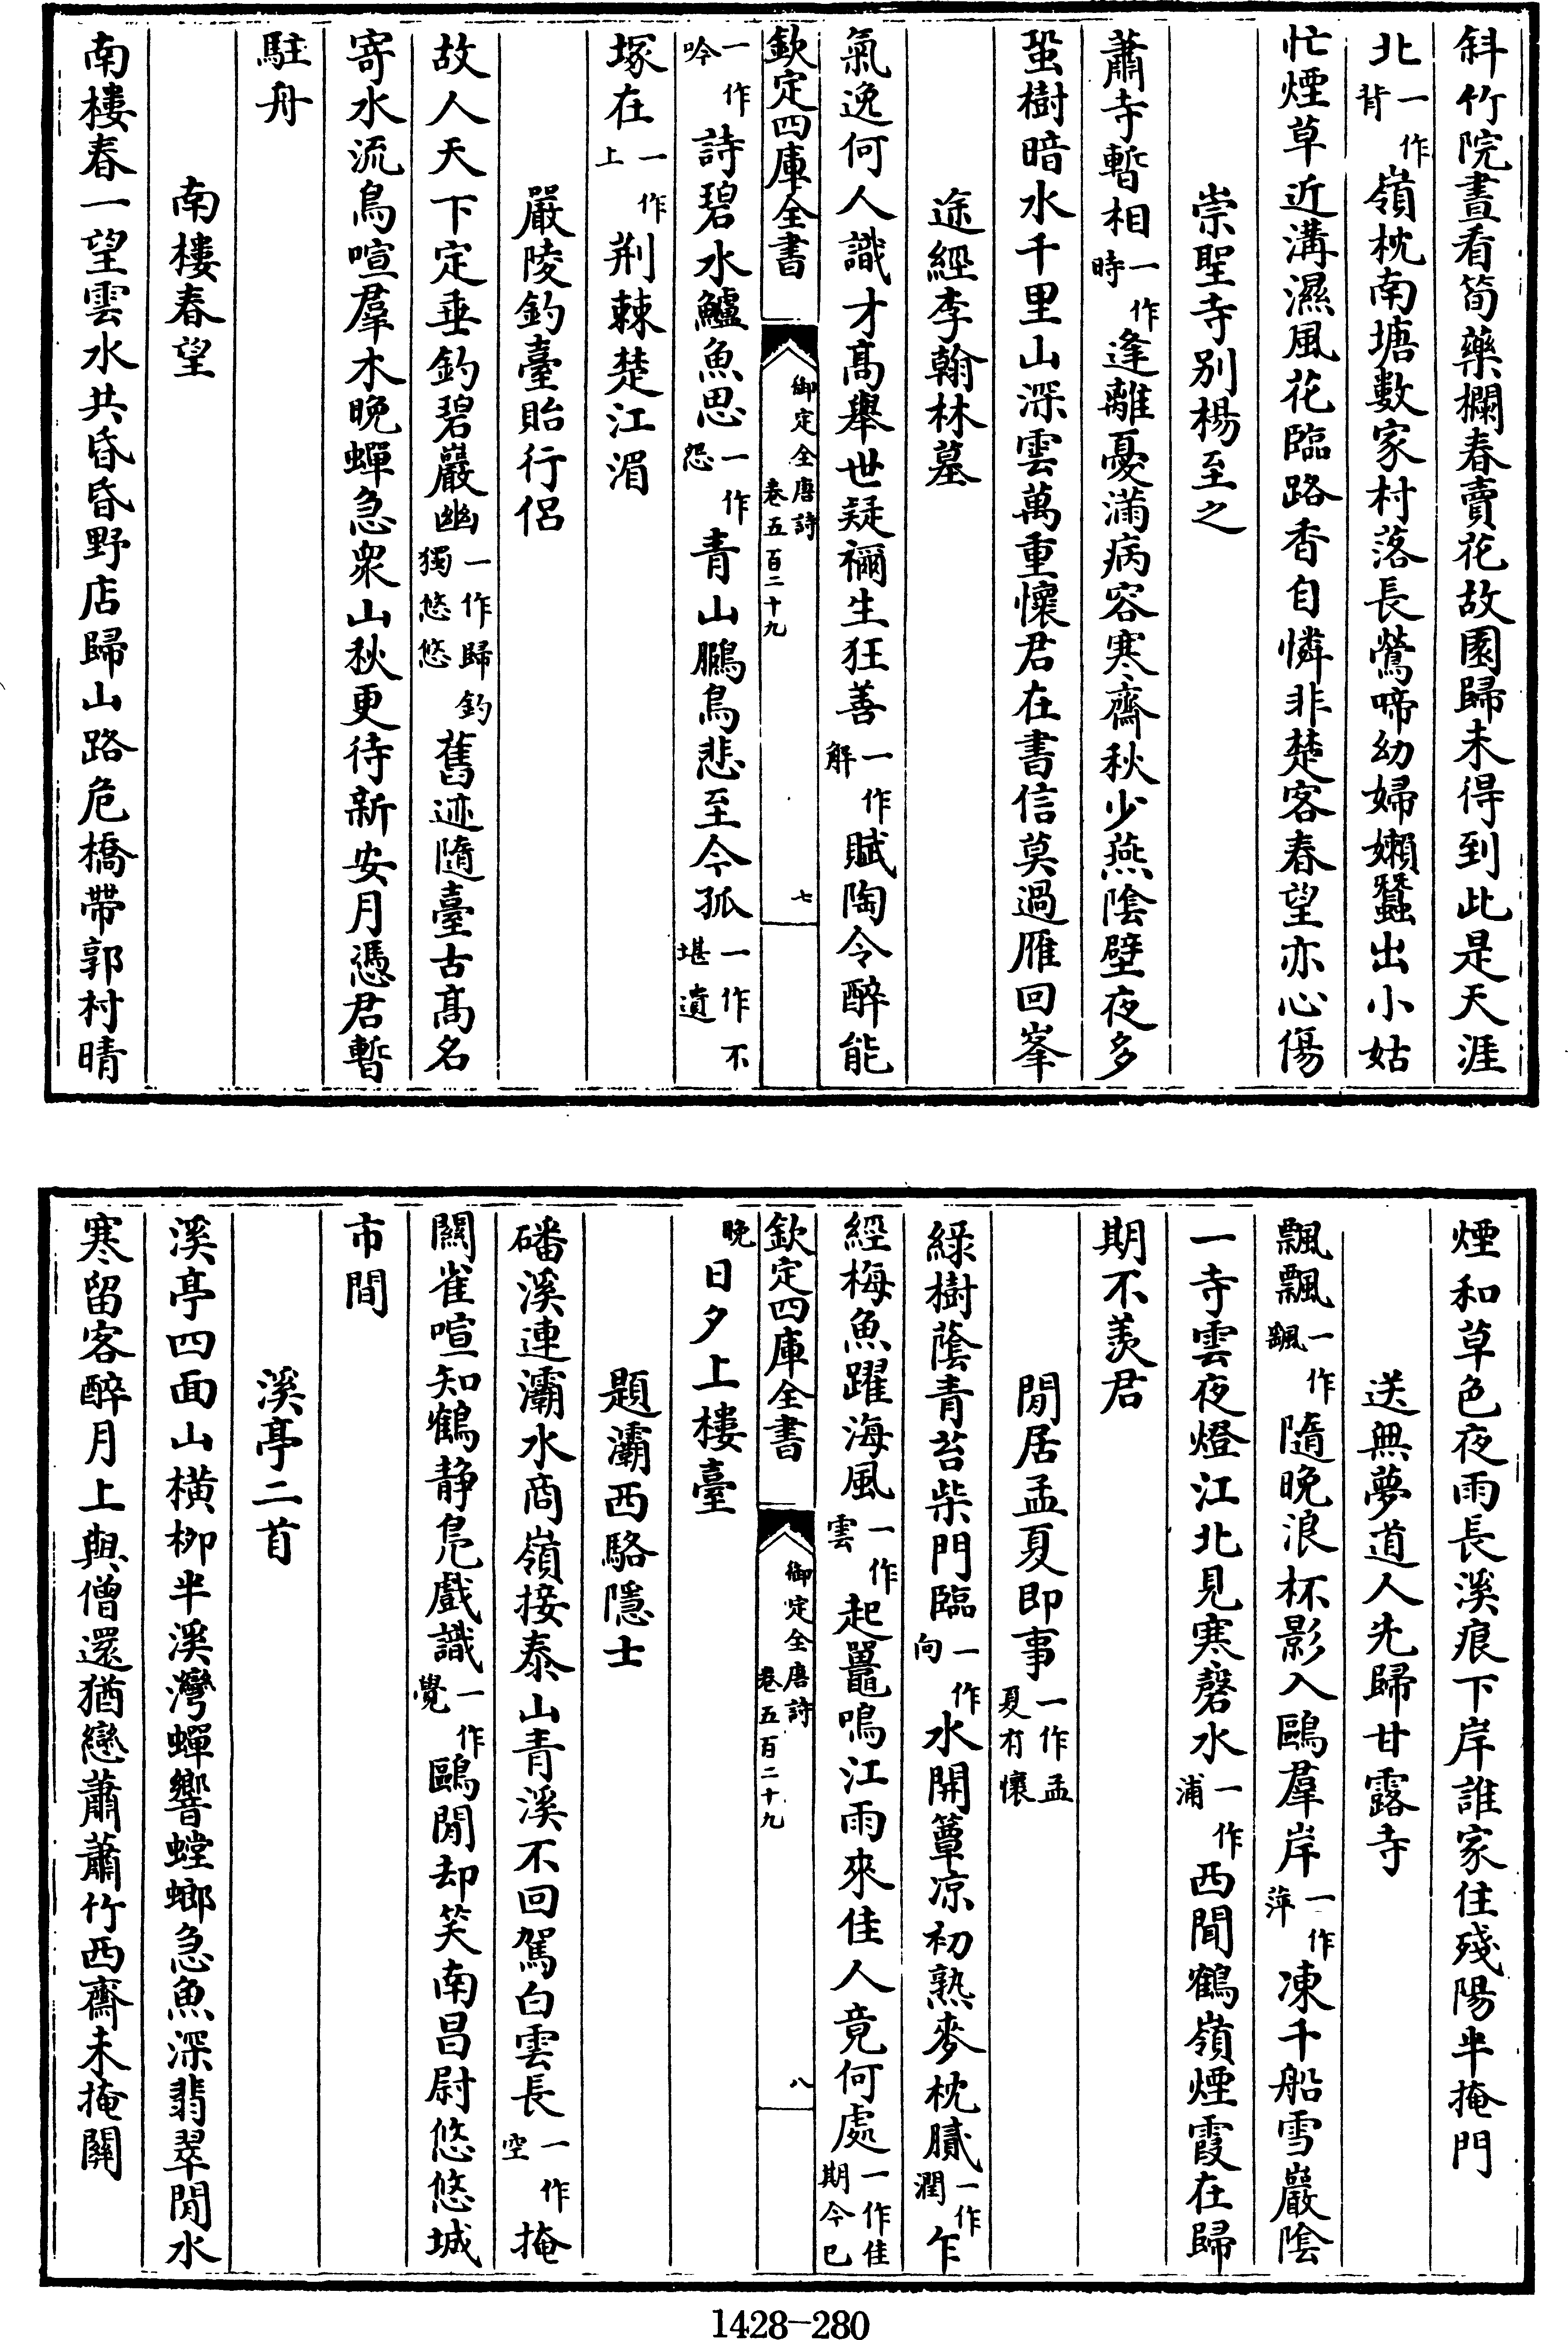 斜竹院晝看筍藥欄春賣花故園歸未得到此是天涯
北一作背嶺枕南塘數家村落長鶯啼幼婦嬾蠶出小姑
忙煙草近溝濕風花臨路香自憐非楚客春望亦心傷
崇聖寺别楊至之
蕭寺暫相一作時逢離憂滿病容寒齋秋少燕陰壁夜多
蛩樹暗水千里山深雲萬重懷君在書信莫過雁回峯
途經李翰林墓
氣逸何人識才高舉世疑禰生狂善一作解賦陶令醉能
欽定四庫全書
御定全唐詩
卷五百二十九
七
一作吟詩碧水鱸魚思一作怨青山鵩鳥悲至今孤一作不堪遺
塚在一作上荆棘楚江湄
嚴陵釣臺貽行侣
故人天下定垂釣碧巖幽一作歸釣獨悠悠舊迹隨臺古高名
寄水流鳥喧羣木晚蟬急衆山秋更待新安月憑君暫
駐舟
南樓春望
南樓春一望雲水共昏昏野店歸山路危橋帶郭村晴
煙和草色夜雨長溪痕下岸誰家住殘陽半掩門
送無夢道人先歸甘露寺
飄飄一作飄隨晚浪杯影入鷗羣岸一作萍凍千船雪巖陰
一寺雲夜燈江北見寒磬水一作浦西聞鶴嶺煙霞在歸
期不羡君
閒居孟夏即事一作孟夏有懷
緑樹蔭青苔柴門臨一作向水開簟凉初熟麥枕膩一作潤乍
經梅魚躍海風一作雲起鼉鳴江雨來佳人竟何處一作佳期今已
欽定四庫全書
御定全唐詩
卷五百二十九
八
晚日夕上樓臺
題灞西駱隱士
磻溪連灞水商嶺接泰山青溪不回駕白雲長一作空掩
關雀喧知鶴静鳧戲識一作覺鷗閒却笑南昌尉悠悠城
市間
溪亭二首
溪亭四面山横柳半溪灣蟬響螳螂急魚深翡翠閒水
寒留客醉月上與僧還猶戀蕭蕭竹西齋未掩關
1428-280